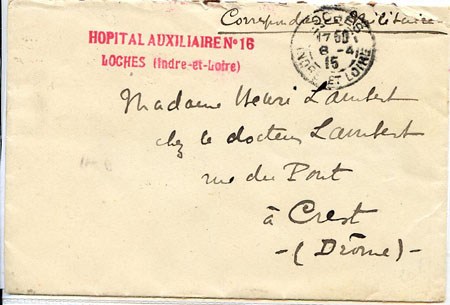 Correspondance Militaire
HOPITAL AUXILIAIRE No 16
LOCHES (Indre-et-Loire)
LOCHES
17 50
8 - 4
15
INDRE-ET-LOIRE
Madame Henri Lambert
chez le docteur Lambert
rue du Pont
à Crest
-(Drôme)-